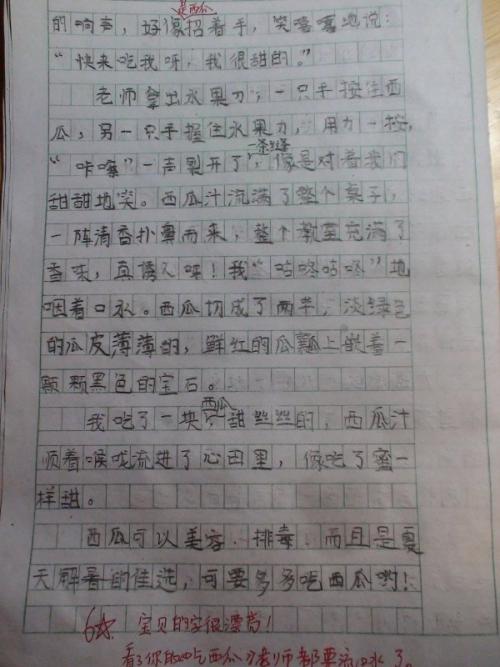 是西瓜
的响声，好像招着手，笑嘻嘻地说：
“快来吃我呀，我很甜的。”
老师拿出水果刀，一只手按住西
瓜，另一只手握住水果刀，用力一按，
一条丝缝
“咔嚓”一声裂开了，像是对着我们
甜甜地笑。西瓜汁流满了整个桌子，
一阵清香扑鼻而来，整个教室充满了
香味，真诱人呀！我“咕咚咕咚”地
咽着口水。西瓜切成了两半，淡绿色
的瓜皮薄薄的，鲜红的瓜瓤上嵌着一
颗颗黑色的宝石。
西瓜
我吃了一块，甜丝丝的，西瓜汁
顺着喉咙流进了心田里，像吃了蜜一
样甜。
西瓜可以美容、排毒，而且是夏
天解暑的佳选，可要多多吃西瓜哟！
宝贝的字很漂亮！
看了你的吃西瓜，老师都要流口水了。